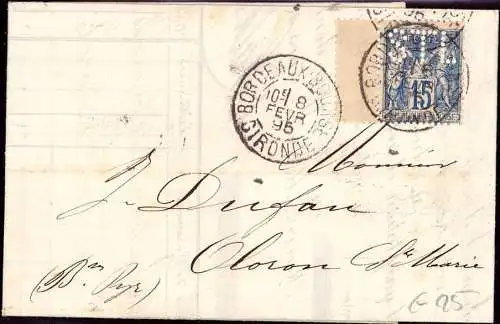 BORDEAUX-BOURSE
10E/ 8
FEVR
95
GIRONDE
POSTE
15
Monsieur
J. Dufau
Oloron Ste Marie
(Bses Pyr)
€ 25